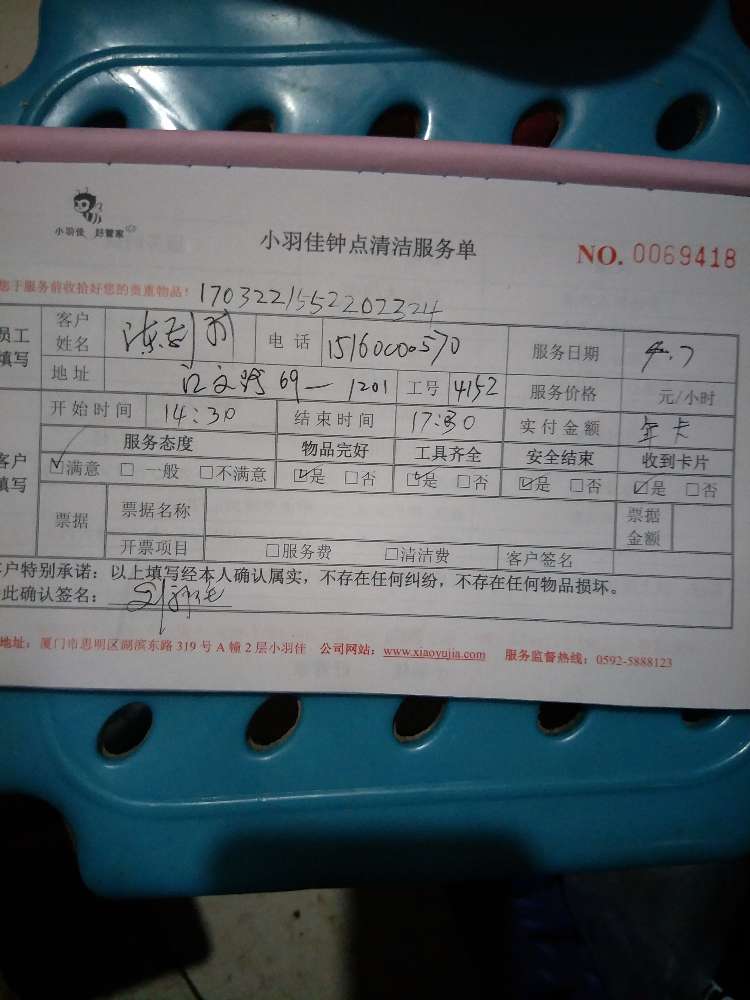 小羽佳 好管家
小羽佳钟点清洁服务单
NO. 0069418
您于服务前收拾好您的贵重物品！17032215522202324
员工填写 客户姓名 电话 15160000570 服务日期 4.7
地址 69-1201 工号 4152 服务价格 元/小时
客户填写 开始时间 14:30 结束时间 17:30 实付金额 年卡
服务态度 物品完好 工具齐全 安全结束 收到卡片
☑满意 □一般 □不满意 ☑是 □否 ☑是 □否 ☑是 □否 ☑是 □否
票据 票据名称 票据金额
开票项目 □服务费 □清洁费 客户签名
客户特别承诺：以上填写经本人确认属实，不存在任何纠纷，不存在任何物品损坏。
此确认签名：
地址：厦门市思明区湖滨东路 319 号 A 幢 2 层小羽佳 公司网站：www.xiaoyujia.com 服务监督热线：0592-5888123